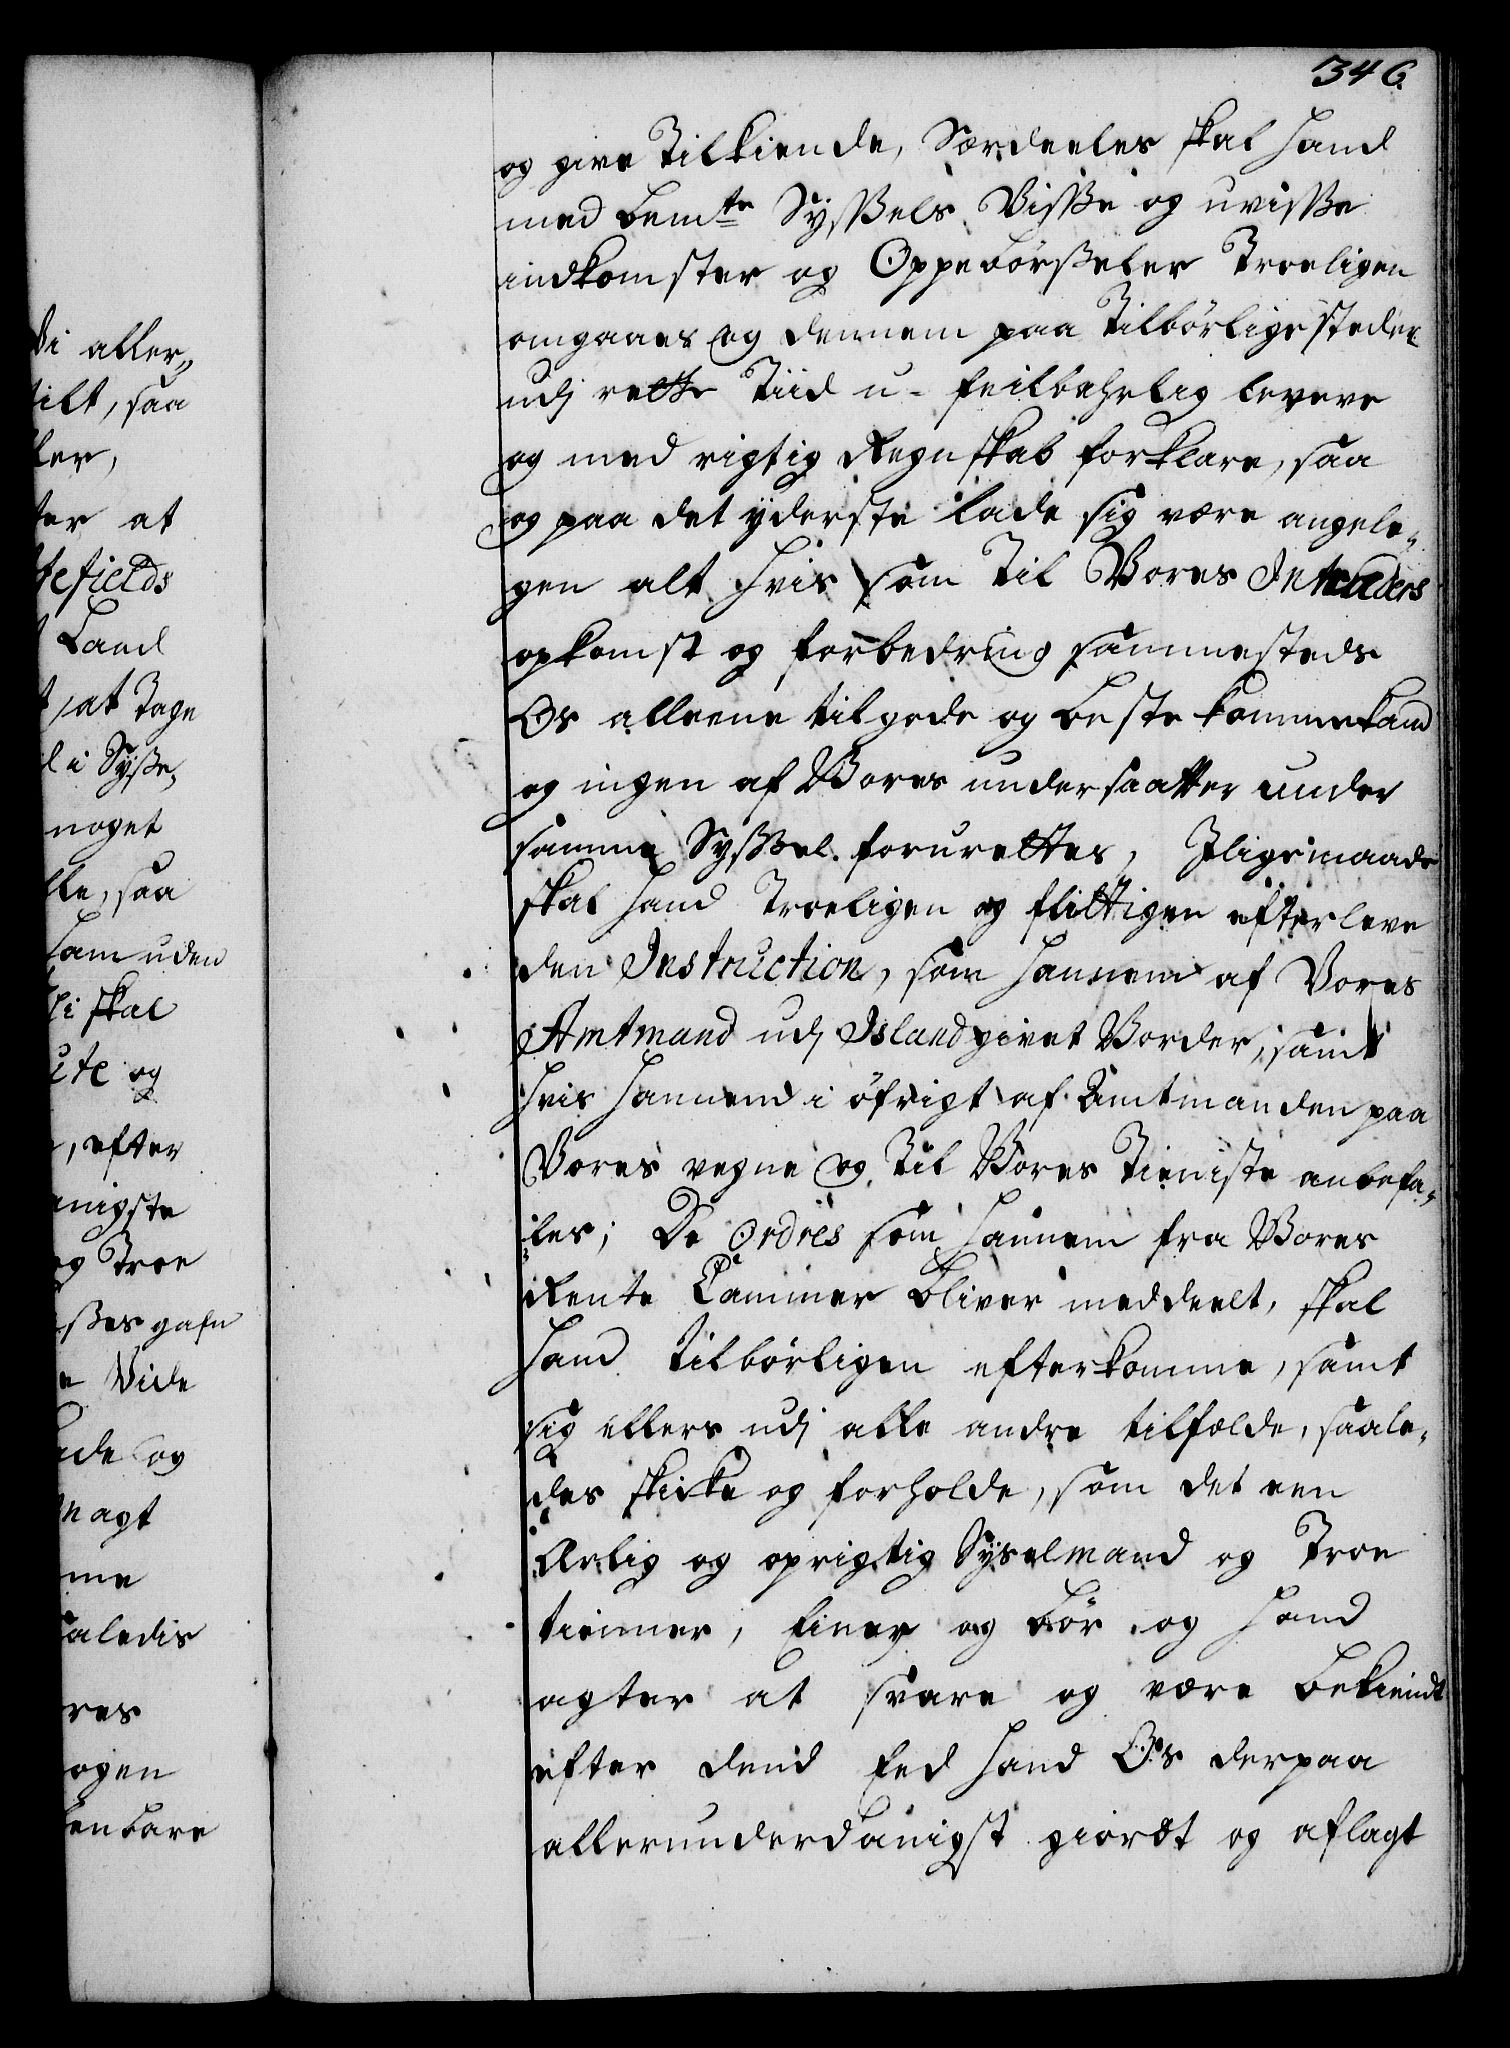 346.
og give Tilkiende, Særdeeles skal hand
med bemte Sysßels Visße og uvisße
indkomster og Oppebörßeler Troeligen
omgaaes og dennem paa Tilbörlige steder
udj rette Tiid u-feilbahrlig levere
og med rigtig Regnskab forklare, saa
og paa det yderste lade sig være angele-
gen alt hvis som Til Vores Intraders
opkomst og forbedring sammesteds
Os alleene til gode og beste komme kand
og ingen af Vores undersaatter under
samme Sysßel forurettes, Jligemaade
skal hand Troeligen og flittigen efterleve
den Instruction, som hannem af Vores
Amtmand udj Island givet Vorder, samt
hvis hannem i öfrigt af Amtmanden paa
Vores vegne og Til Vores Tieniste anbefa-
les; De Ordres som hannem fra Vores
Rente Cammer bliver meddeelt, skal
hand tilbörligen efterkomme, samt
sig ellers udj alle andre tilfælde, saale-
des skicke og forholde, som det een
Ærlig og oprigtig Syselmand og Troe
tienner, Eigner og bör og hand
agter at svare og være bekiendt
efter dend Eed hand Os derpaa
allerunderdanigst giordt og aflagt
Vi aller-
tilt, saa
ler,
ter at
tefields
Land
at Tage
l i Syße-
noget
lle, saa
ham uden
skal
ute og
, efter
anigste
og Troe
ßes gafn
e Vide
ade og
magt
me
saaledis
res
ogen
benbare